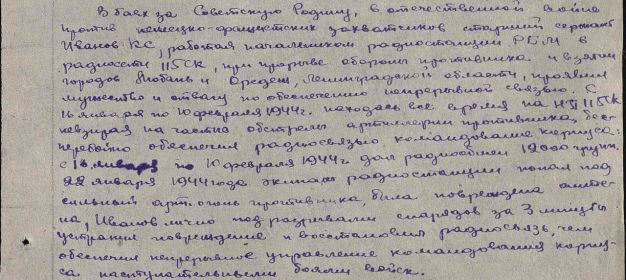 В боях за Советскую Родину, в отечественной войне
против немецко-фашистских захватчиков старший сержант
Иванов КС, работая начальником радиостанции РБМ в
радиосети 115СК, при прорыве обороны противника и взятии
городов Любань и Оредеж, Ленинградской области, проявил
мужество и отвагу по обеспечению непрерывной связью. С
16 января по 10 февраля 1944г. находясь всё время на НП 115СК
невзирая на частые обстрелы артиллерии противника, бес-
перебойно обеспечил радиосвязью командование корпуса:
с 16 января по 10 февраля 1944г дал радиообмен 12000 групп.
22 января 1944 года экипаж радиостанции попал под
сильный арт. огонь противника, была повреждена антен-
на, Иванов лично под разрывами снарядов за 3 минуты
устранил повреждение и восстановил радиосвязь, чем
обеспечил непрерывное управление командования корпу-
са наступательными боями войск.